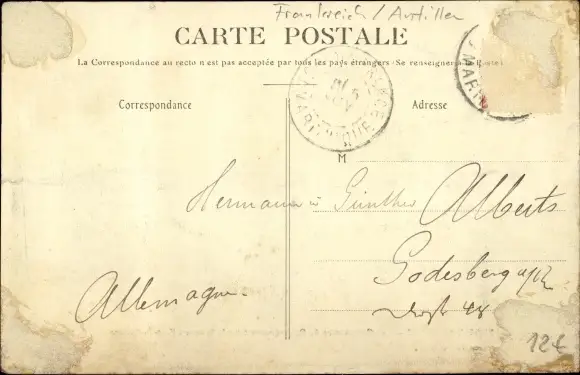 Frankreich / Antillen
CARTE POSTALE
La Correspondance au recto n'est pas acceptée par tous les pays étrangers (Se renseigner à la Poste)
Correspondance
Adresse
MARTINIQUE
MARTI
M
Hermann u Günther Alberts
Godesberg a/Rh
Allemagne.
12€